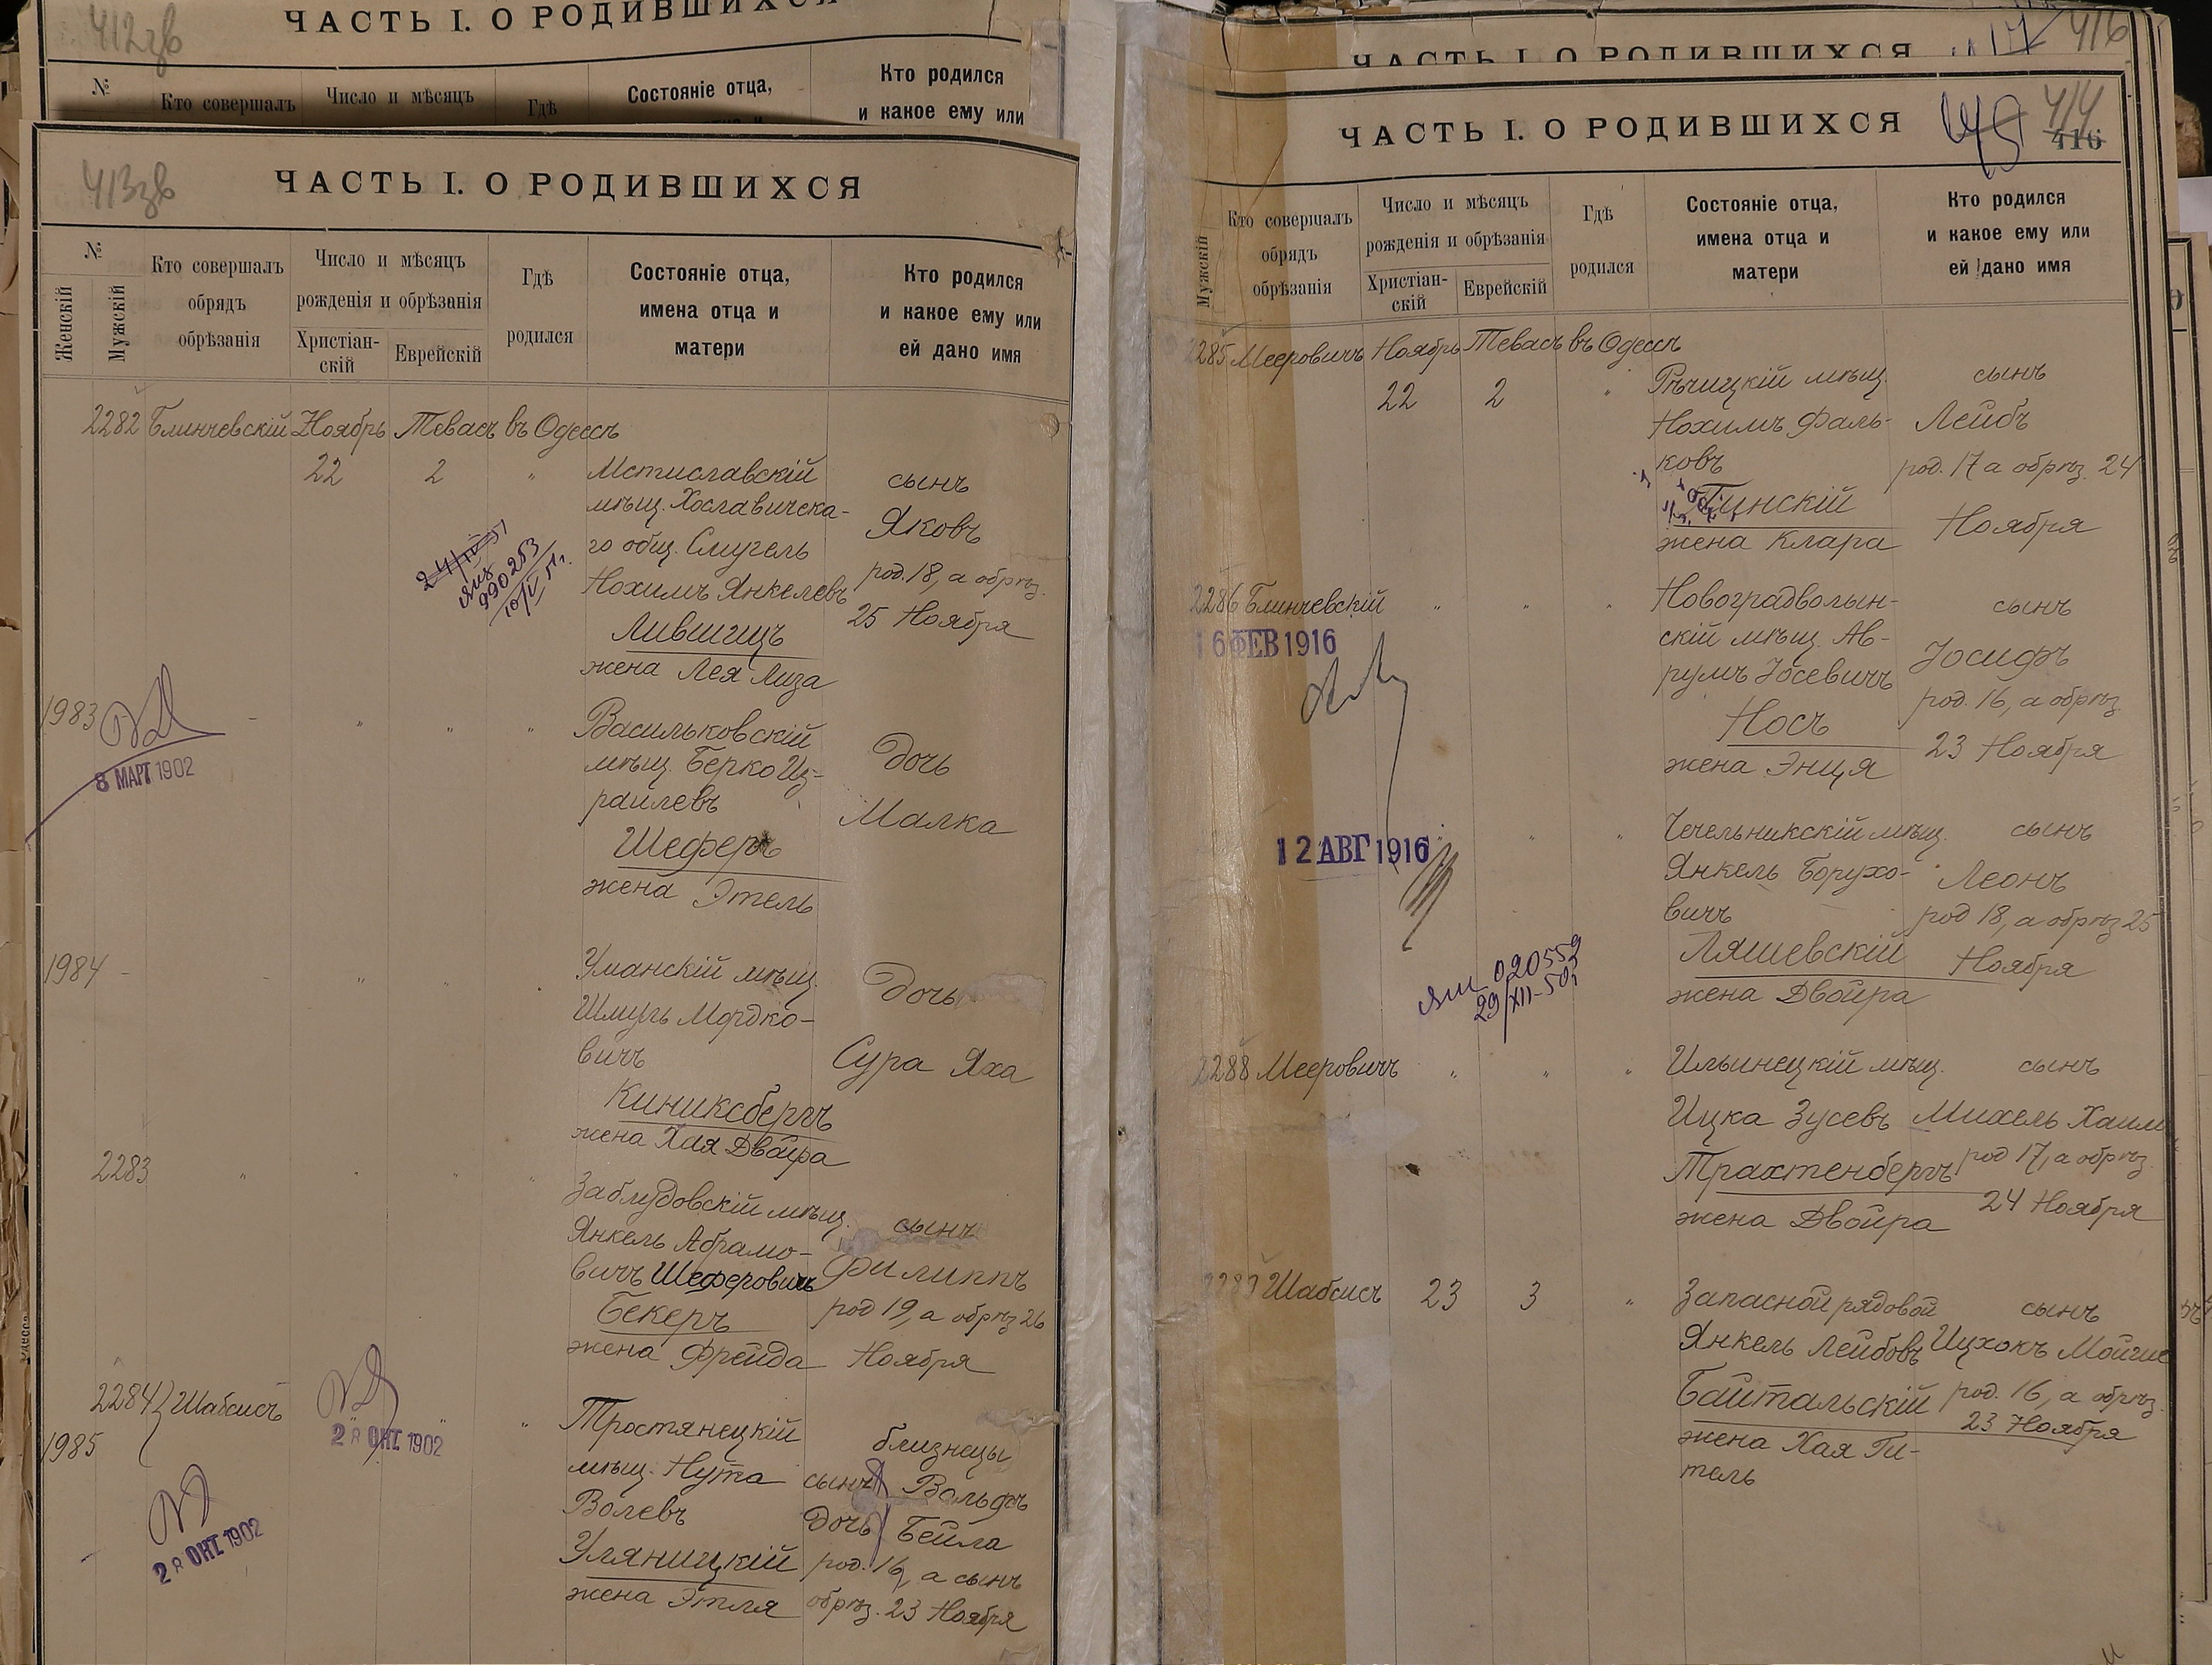 412зв
ЧАСТЬ I. О РОДИВШИХСЯ
№
Кто совершалъ
Число и мѣсяцъ
Гдѣ
Состояніе отца,
Кто родился
и какое ему или
413зв
ЧАСТЬ I. О РОДИВШИХСЯ
№
Женскій
Мужскій
Кто совершалъ
обрядъ
обрѣзанія
Число и мѣсяцъ
рожденія и обрѣзанія
Христіан-
скій
Еврейскій
Гдѣ
родился
Состояніе отца,
имена отца и
матери
Кто родился
и какое ему или
ей дано имя
2282 Блинчевскій Ноябрь Тевасъ въ Одессѣ
22 2 "
Мстиславскій
мѣщ. Хославичска-
го общ. Смугель
Нохимъ Янкелевъ
Лившицъ
жена Лея Лиза
сынъ
Яковъ
род. 18, а обрѣз.
25 Ноября
24/IV 51
990253
10/V 51г.
1983 - " " "
8 МАРТ 1902
Васильковскій
мѣщ. Берко Из-
раилевъ
Шеферъ
жена Этель
Дочь
Малка
1984 - - " "
Уманскій мѣщ.
Шмуль Мордко-
вичъ
Киниксбергъ
жена Хая Двойра
Дочь
Сура Яха
2283 " " " "
Заблудовскій мѣщ.
Янкель Абрамо-
вичъ Шеферовичъ
Бекеръ
жена Фрейда
сынъ
Филиппъ
род 19, а обрѣз 26
Ноября
2284 Шабсисъ
1985
28 ОКТ. 1902
28 ОКТ 1902
Тростянецкій
мѣщ. Нута
Волевъ
Уляницкій
жена Этля
близнецы
сынъ Вольфъ
Дочь Бейла
род. 16, а сынъ
обрѣз. 23 Ноября
416
ЧАСТЬ I. О РОДИВШИХСЯ
414
416
ЧАСТЬ I. О РОДИВШИХСЯ
Мужскій
Кто совершалъ
обрядъ
обрѣзанія
Число и мѣсяцъ
рожденія и обрѣзанія
Христіан-
скій
Еврейскій
Гдѣ
родился
Состояніе отца,
имена отца и
матери
Кто родился
и какое ему или
ей дано имя
2285 Мееровичъ Ноябрь Тевасъ въ Одессѣ
22 2 "
Рѣчицкій мѣщ.
Нохимъ Фаль-
ковъ
Гинскій
жена Клара
сынъ
Лейбъ
род. 17 а обрѣз. 24
Ноября
2286 Блинчевскій " " "
16 ФЕВ 1916
Новоградволын-
скій мѣщ. Ав-
румъ Іосевичъ
Носъ
жена Энця
сынъ
Іосифъ
род. 16, а обрѣз.
23 Ноября
12 АВГ 1916
" " "
Чечельникскій мѣщ.
Янкель Борухо-
вичъ
Ляшевскій
жена Двойра
сынъ
Леонъ
род 18, а обрѣз 25
Ноября
020559
29/XII-50г
2288 Мееровичъ " " "
Ильинецкій мѣщ.
Ицка Зусевъ
Трахтенбергъ
жена Двойра
сынъ
Михель Хаим
род 17, а обрѣз.
24 Ноября
2289 Шабсисъ 23 3 "
Запасной рядовой
Янкель Лейбовъ
Байтальскій
жена Хая Ги-
тель
сынъ
Ицхокъ Мойше
род. 16, а обрѣз.
23 Ноября